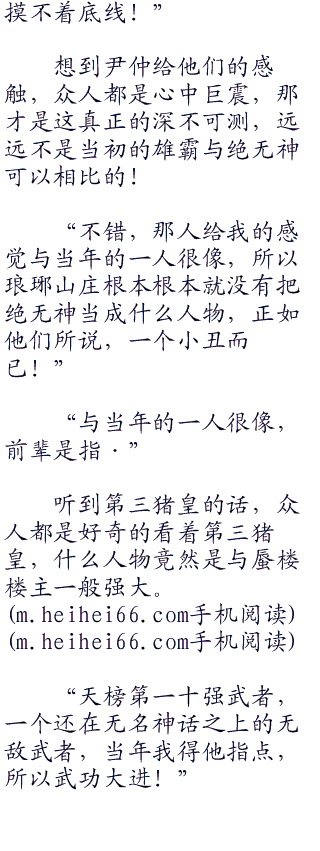 摸不着底线！”
想到尹仲给他们的感
触，众人都是心中巨震，那
才是这真正的深不可测，远
远不是当初的雄霸与绝无神
可以相比的！
“不错，那人给我的感
觉与当年的一人很像，所以
琅琊山庄根本根本就没有把
绝无神当成什么人物，正如
他们所说，一个小丑而
已！”
“与当年的一人很像，
前辈是指·”
听到第三猪皇的话，众
人都是好奇的看着第三猪
皇，什么人物竟然是与蜃楼
楼主一般强大。
(m.heihei66.com手机阅读)
(m.heihei66.com手机阅读)
“天榜第一十强武者，
一个还在无名神话之上的无
敌武者，当年我得他指点，
所以武功大进！”